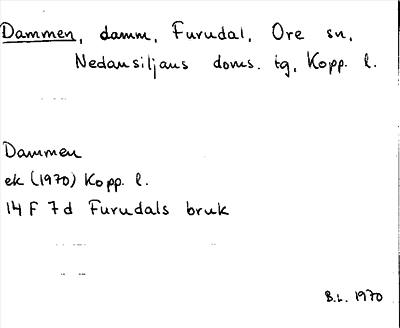 Dammen, damm, Furudal, Ore sn,
Nedansiljans doms. tg, Kopp. l.
Dammen
ek (1970) Kopp. l.
14 F 7 d Furudals bruk
B.L. 1970